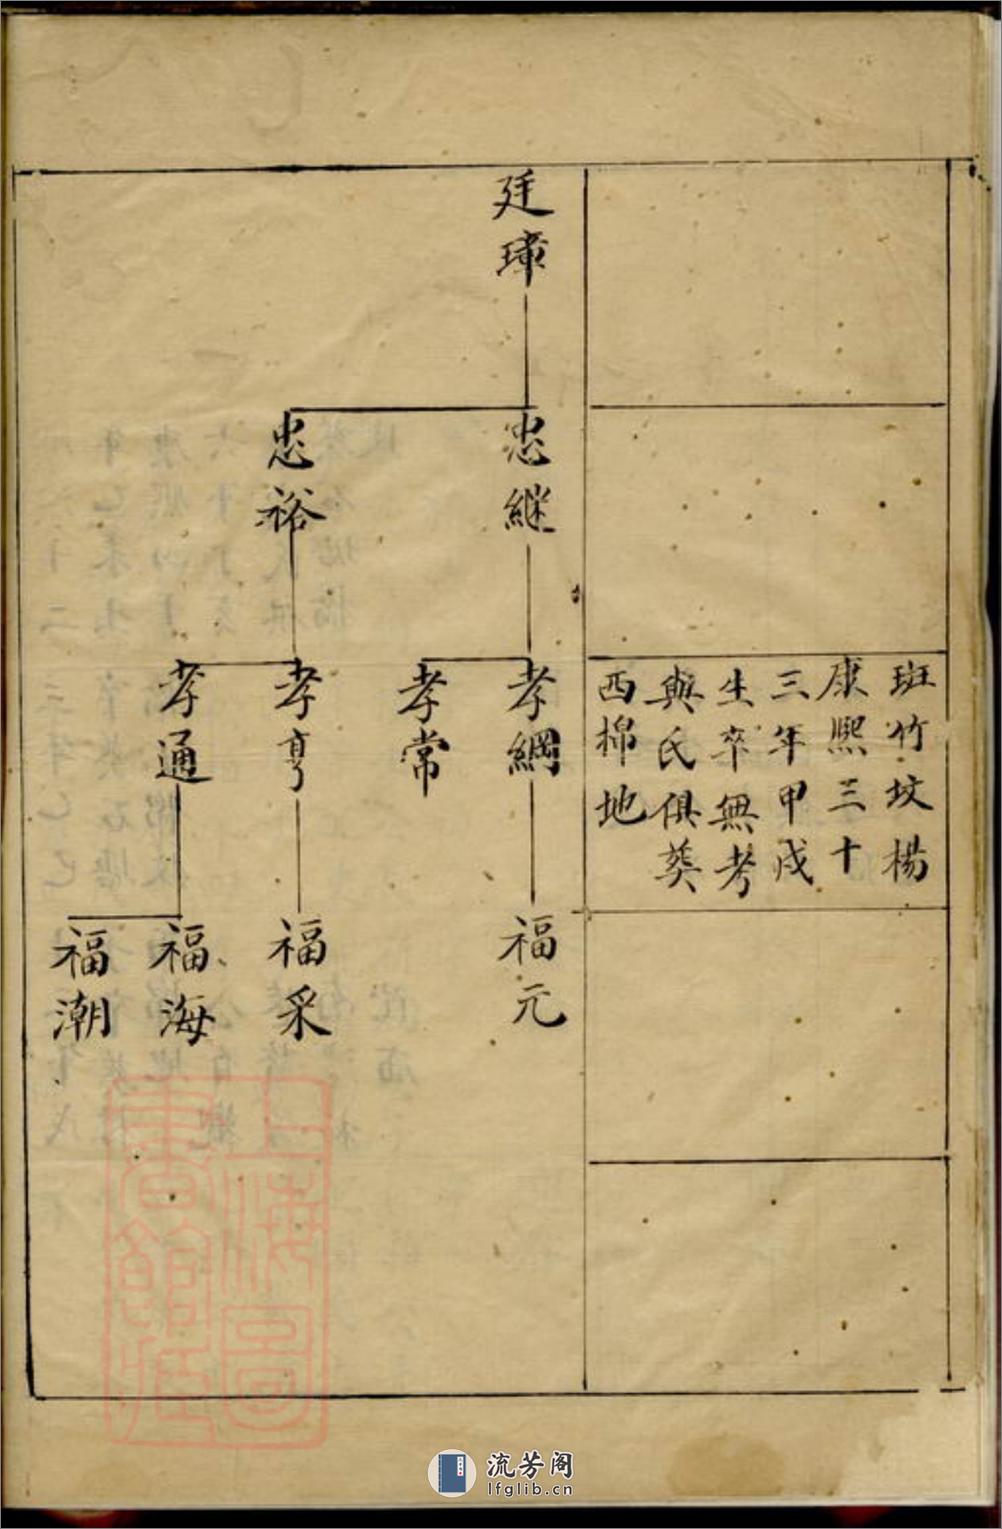 班竹坟楊
康熙三十
三年甲戌
生卒無考
與氏俱葵
西棉地
廷璋
忠継
忠裕
孝綱
孝常
孝亨
孝通
福元
福采
福海
福潮
上海圖
書館藏
流芳阁
lfglib.cn